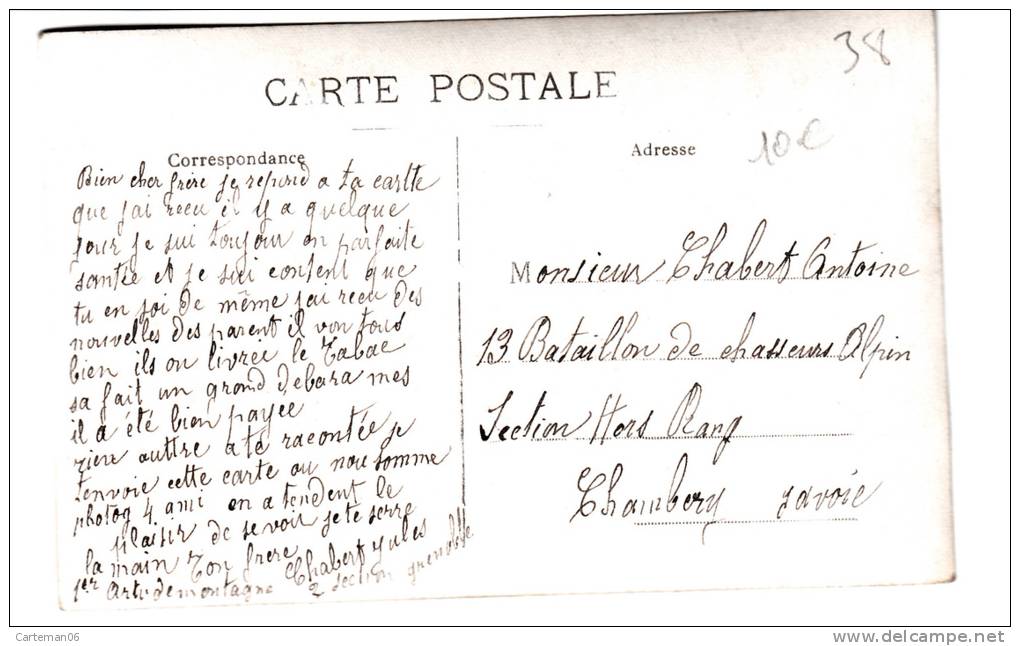 38
CARTE POSTALE
10€
Correspondance
Bien cher frère je repond a ta cartte
que jai recu il y a quelque
jour je sui toujour en parfaite
santée et je sui content que
tu en soi de même jai recu des
nouvelles des parent il von tous
bien ils on livrée le Tabac
sa fait un grand debara mes
il a été bien payée
rien auttre a te racontée je
tenvoie cette carte ou nou somme
photog 4 ami en atendent le
plaisir de se voir je te serre
la main Ton frere
Chabert Jules
1er Artie de montagne 2 section grenoble
Adresse
Monsieur Chabert Antoine
13 Bataillon de chasseurs Alpin
Section Hors Rang
Chambery savoie
Carteman06
www.delcampe.net